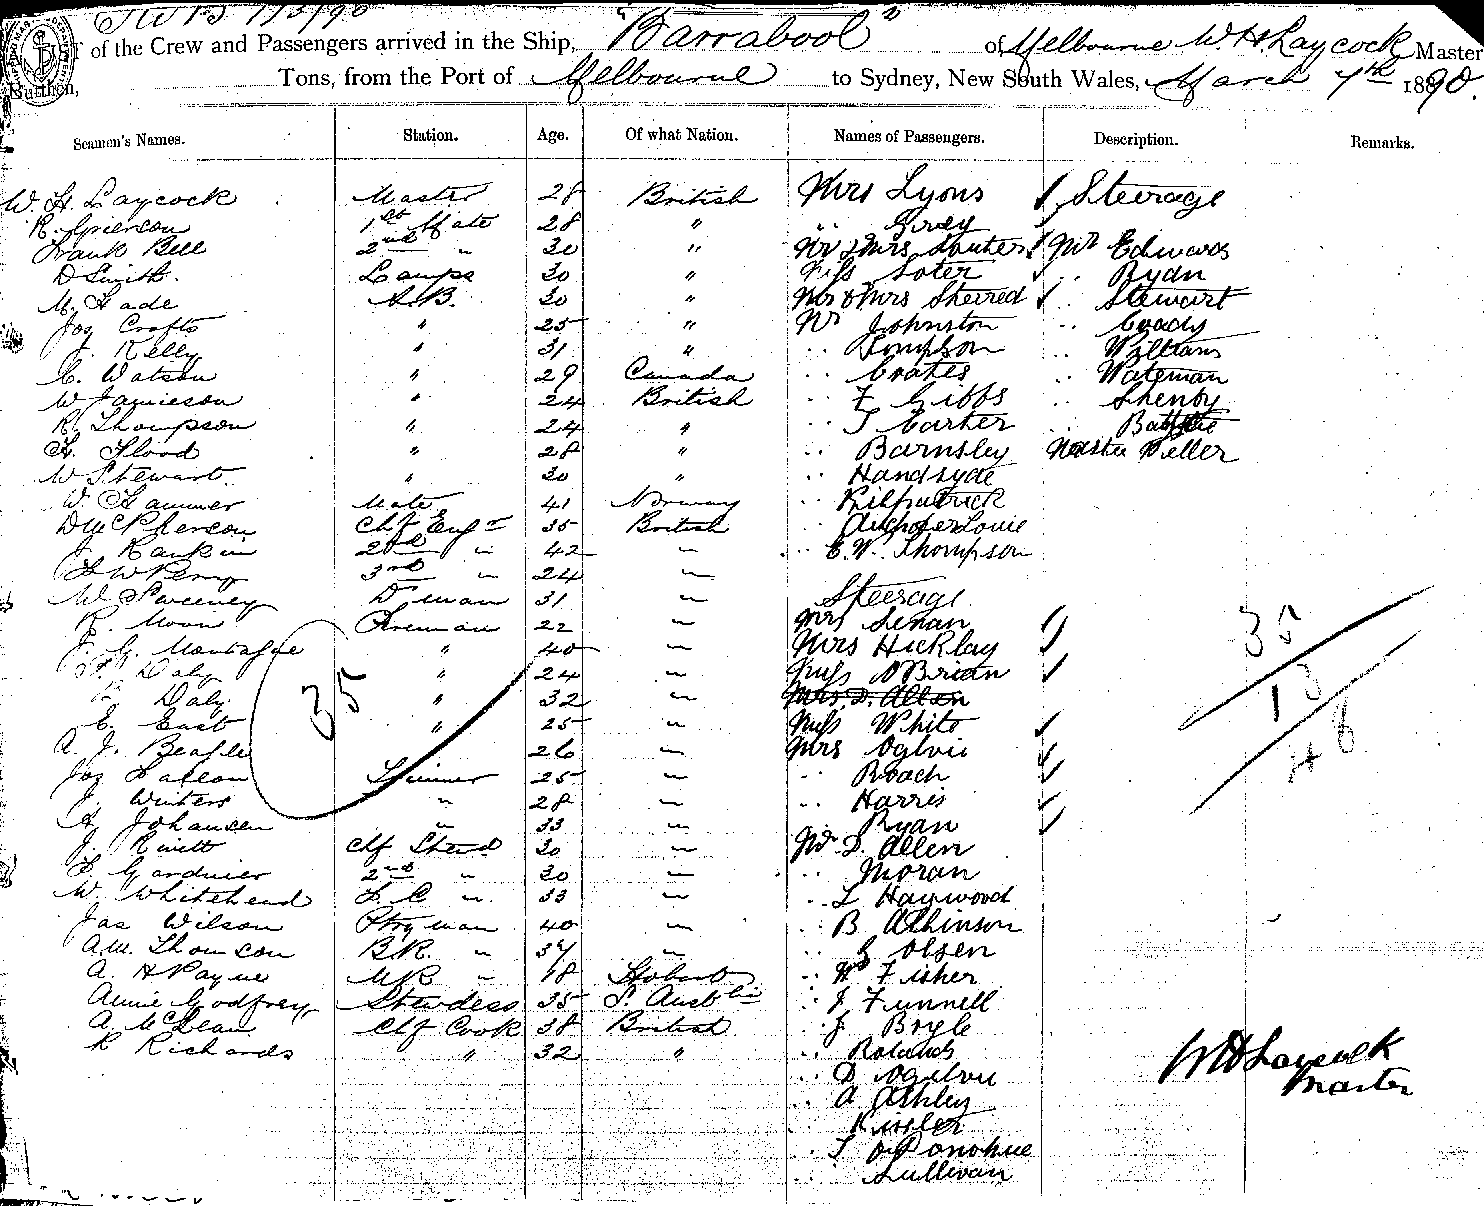 of the Crew and Passengers arrived in the Ship, "Barrabool" of Melbourne W. H. Laycock Master
Tons, from the Port of Melbourne to Sydney, New South Wales, March 7th 1890.
Seamen's Names. Station. Age. Of what Nation. Names of Passengers. Description. Remarks.
W. H. Laycock Master 28 British Mrs Lyons Steerage
R. Grierson 1st Mate 28 " " Grey
Frank Bell 2nd " 30 " Mr & Mrs Souters Mr Edwards
D Smith. Lamps 30 " Miss Soter " Ryan
M. Hade A.B. 30 " Mr & Mrs Sherred " Stewart
Jos Crofts " 25 " Mr Johnston " Coady
J. Kelly " 31 " " Tompson " Williams
C. Watson " 29 Canada " Coates " Wateman
W Jamieson " 24 British " F Gibbs " Shenby
R. Thompson " 24 " " T Carter "
H. Flood " 28 " " Barnsley Master Peller
W Stewart. " 30 " " Handsyde
W. Hammer Mate 41 Norway " Kilpatrick
D McPherson Chf Engr 35 British " Louie
J. Rankin 2nd " 42 " " E. W. Thompson
3rd " 24 "
W Sweeney D'man 31 " Steerage
R. Moon Fireman 22 " Mrs Senan
J. G. Montague " 40 " Mrs Hicklay
F. Daly " 24 " Miss O'Brian
Daly " 32 " Mrs. D. Allen
C. East " 25 " Miss White
A. J. Beasle 26 " Mrs Ogilvie
Jos Fallon Trimmer 25 " " Roach
J. Winters " 28 " " Harris
A. Johansen " 33 " " Ryan
J. Rivett Chf Stewd 30 " Mr D. Allen
Gardiner 2nd " 30 " " Moran
W. Whitehead F. C " 33 " " L Haywood
Jas Wilson Ptryman 40 " " B Atkinson
A.M. Thomson B.R. " 37 " " G Olsen
A. H Payne M.R " 18 Hobart " Wm Fisher
Annie Godfrey Stewdess 35 S. Austlia " J Funnell
A. McLean Chf Cook 38 British " J Boyle
R Richards " 32 " " Rolands
" D Ogilvie
" A Ashley
" Kissler
" T O'Donohue
" Sullivan
35
35
13
48
W H Laycock
Master